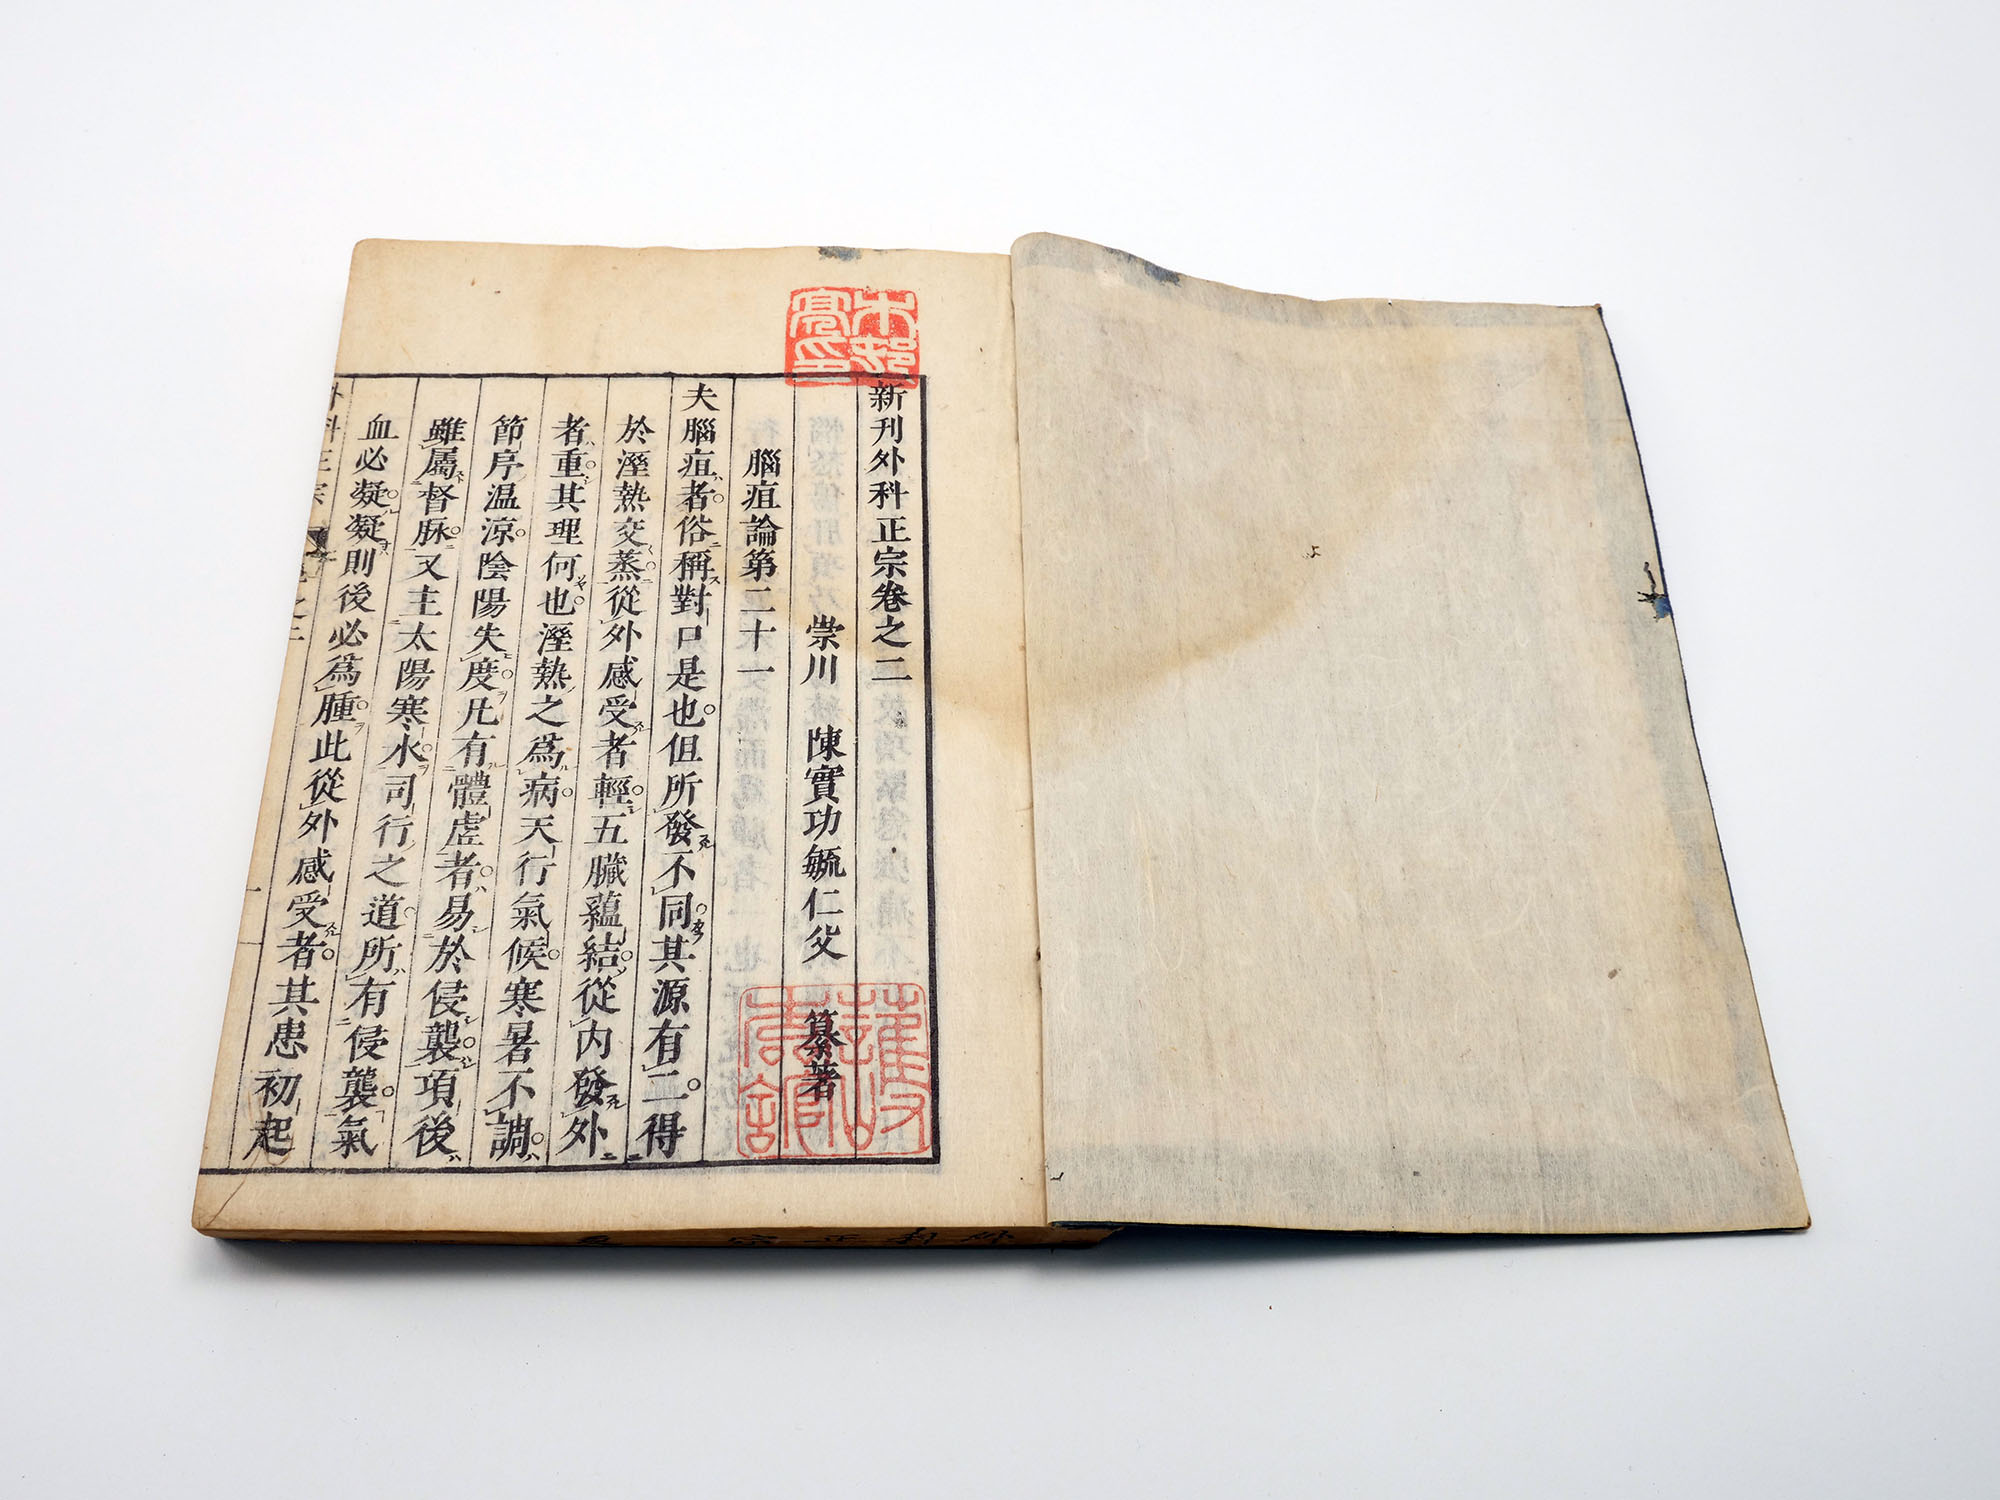 新刊外科正宗卷之二
崇川　陳實功毓仁父　纂著
腦疽論第二十一
夫腦疽者俗稱對口是也但所發不同其源有二得
於溼熱交蒸從外感受者輕五臟蘊結從内發外
者重其理何也溼熱之爲病天行氣候寒暑不調
節序温涼陰陽失度凡有體虛者易於侵襲項後
雖屬督脉又主太陽寒水司行之道所有侵襲氣
血必凝凝則後必爲腫此從外感受者其患初起
外科正宗
一
木邨
亮印